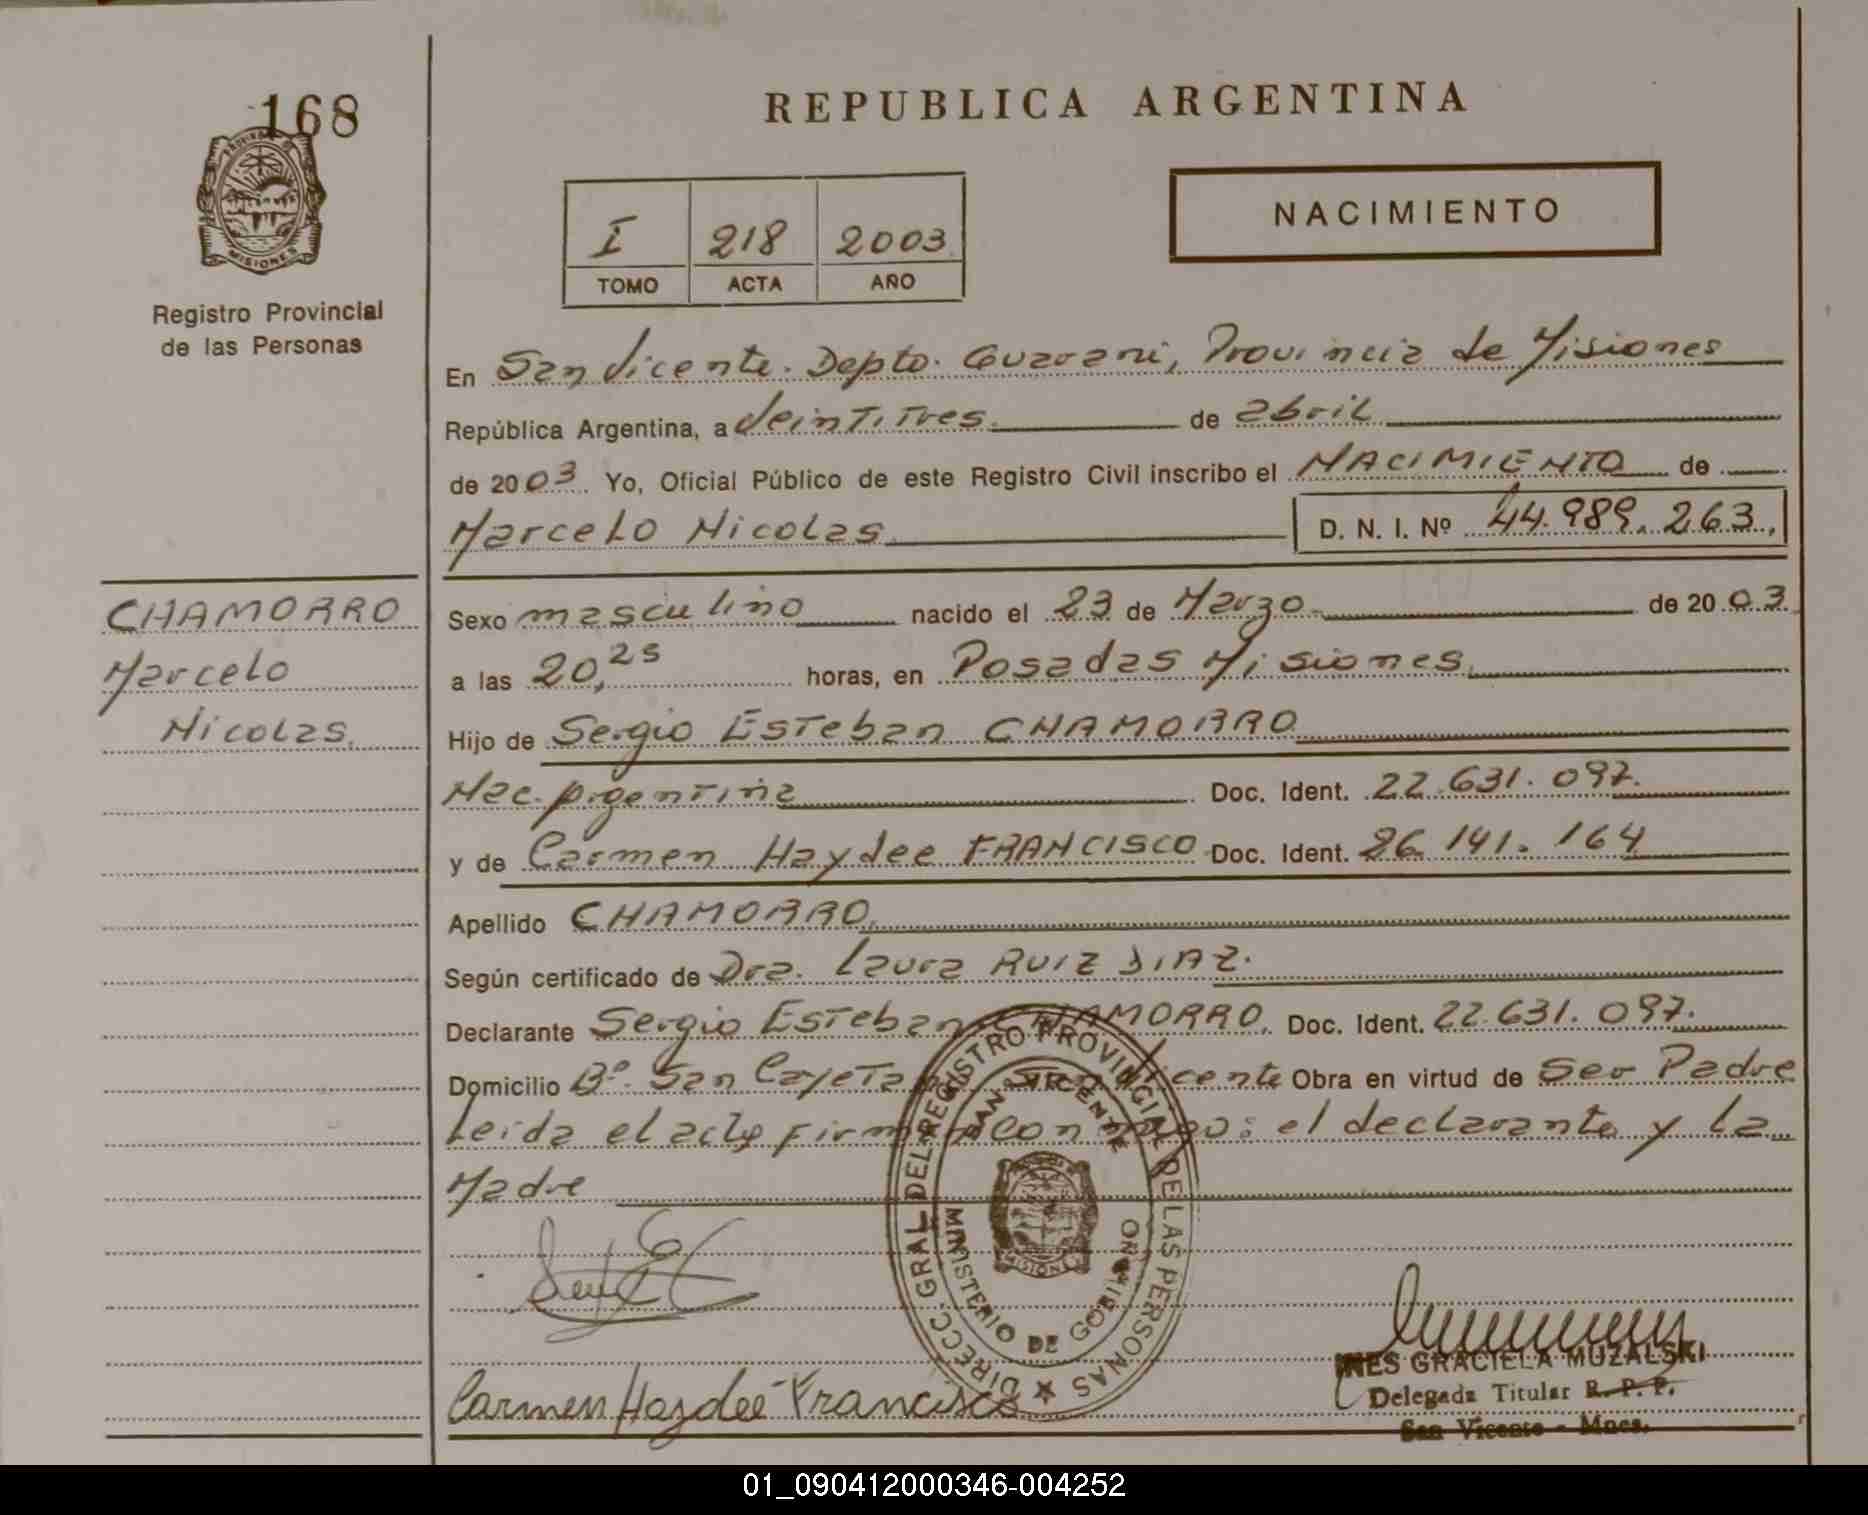 168
REPUBLICA ARGENTINA
PROVINCIA DE
MISIONES
Registro Provincial
de las Personas
I 218 2003
TOMO ACTA AÑO
NACIMIENTO
En San Vicente. Depto. Guarani, Provincia de Misiones
República Argentina, a Veintitres de abril
de 2003. Yo, Oficial Público de este Registro Civil inscribo el NACIMIENTO de
Marcelo Nicolas D. N. I. Nº 44.989.263.
CHAMORRO
Marcelo
Nicolas.
Sexo masculino nacido el 23 de Marzo de 2003.
a las 20,25 horas, en Posadas Misiones.
Hijo de Sergio Esteban CHAMORRO
Nac. Argentina Doc. Ident. 22.631.097.
y de Carmen Haydee FRANCISCO Doc. Ident. 26.141.164
Apellido CHAMORRO.
Según certificado de Dra. Laura RUIZ DIAZ.
Declarante Sergio Esteban CHAMORRO. Doc. Ident. 22.631.097.
Domicilio Bº. San Cayetano San Vicente Obra en virtud de Ser Padre
Leida el acta firman conmigo: el declarante y la
Madre
DIRECC. GRAL. DEL REGISTRO PROVINCIAL DE LAS PERSONAS
SAN VICENTE
MISIONES
MINISTERIO DE GOBIERNO
Carmen Haydeé Francisco
INES GRACIELA MUZALSKI
Delegada Titular R. P. P.
San Vicente - Mnes.
01_090412000346-004252